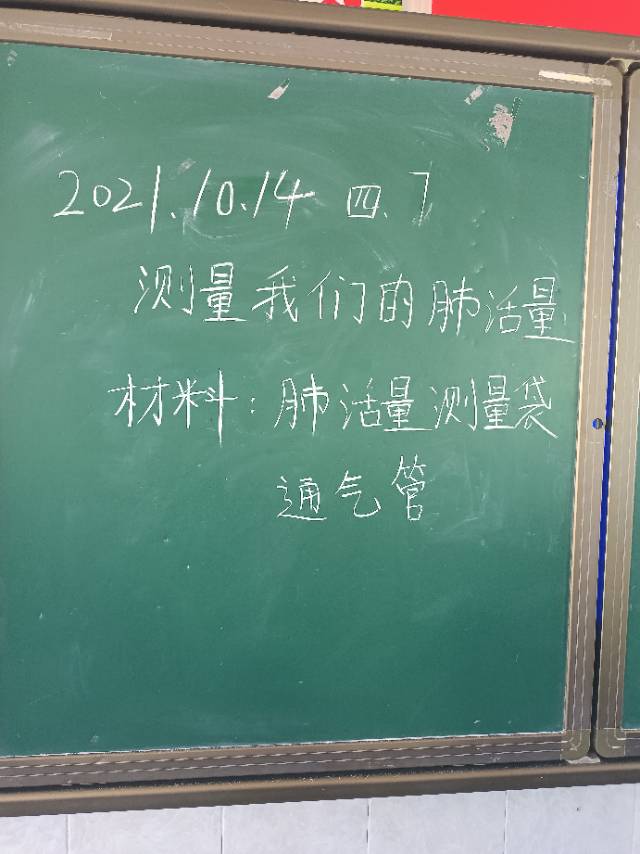 2021.10.14 四.7
测量我们的肺活量
材料：肺活量测量袋
通气管